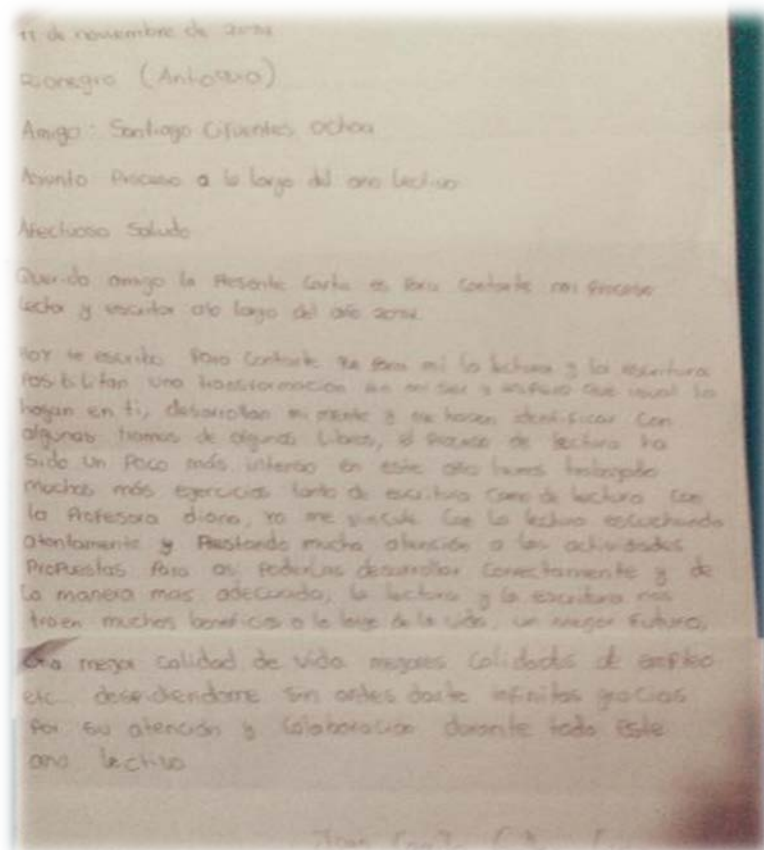 11 de noviembre de
Rionegro (Antioquia)
Amigo: Santiago Cifuentes Ochoa
Asunto Proceso a lo largo del ano lectivo
Afectuoso Saludo
Querido amigo la Presente Carta es Para Contarte mi Proceso
lector y escritor a lo largo del año
Hoy te escribo Para Contarte Para mi la lectura y la escritura
Posibilitan una transformación en mi ser y espero que igual lo
hagan en ti, desarrollan mi mente y me hacen identificar con
algunas tramas de algunos Libros, el Proceso de lectura ha
Sido un Poco más intenso en este año hemos trabajado
muchos más ejercicios tanto de escritura Como de lectura Con
la Profesora diana, Yo me vinculo Con la lectura escuchando
atentamente y Prestando mucha atención a las actividades
ProPuestas Para así Poderlas desarrollar Correctamente y de
la manera mas adecuada, la lectura y la escritura nos
traen muchos beneficios a lo largo de la vida, un mejor Futuro,
mejor calidad de vida mejores Calidades de empleo
etc. sin antes darte infinitas gracias
Por su atención y Colaboración durante todo Este
ano lectivo